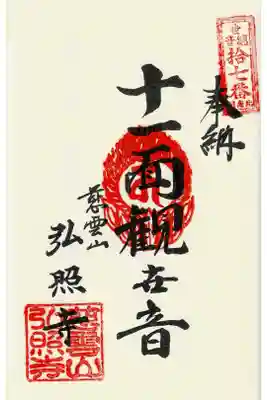 拾七番
奉納
十一面観世音
慈雲山
弘照寺
慈雲山
弘照寺